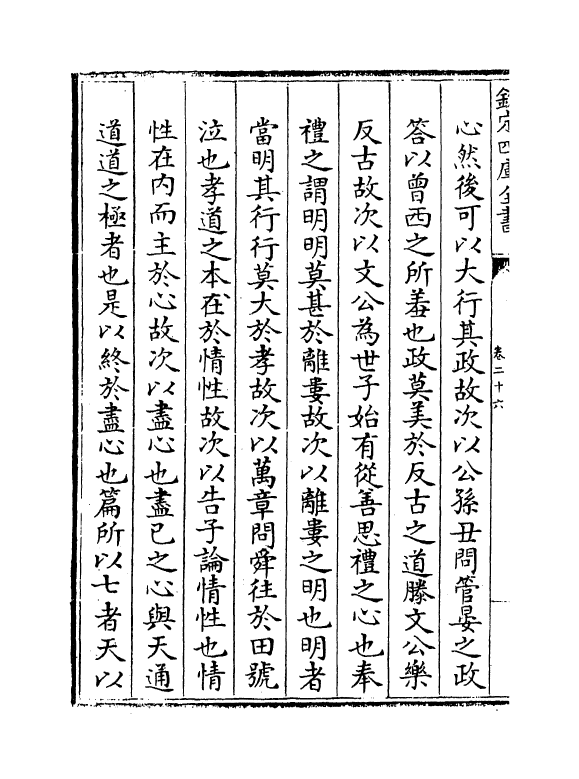 欽定四庫全書
卷二十六
心然後可以大行其政故次以公孫丑問管晏之政
答以曾西之所羞也政莫美於反古之道滕文公樂
反古故次以文公為世子始有從善思禮之心也奉
禮之謂明明莫甚於離婁故次以離婁之明也明者
當明其行行莫大於孝故次以萬章問舜往於田號
泣也孝道之本在於情性故次以告子論情性也情
性在内而主於心故次以盡心也盡已之心與天通
道道之極者也是以終於盡心也篇所以七者天以